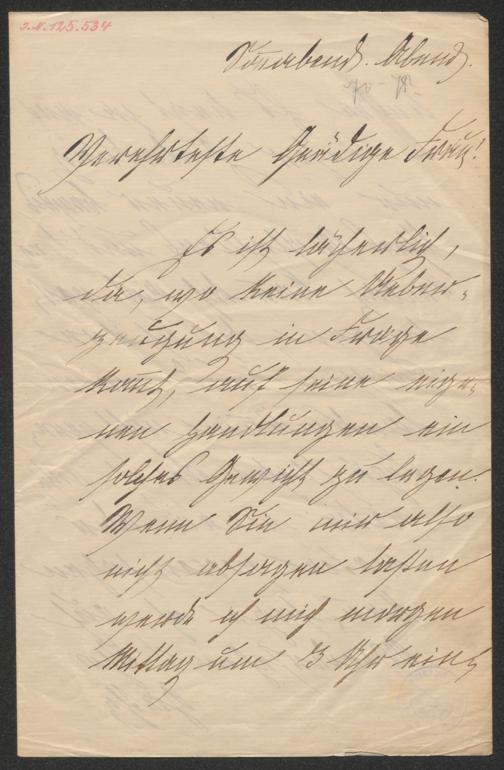 I.N. 125.534
Sonnabend. Abend.
70-78.
Verehrteste Gnädige Frau!
Es ist lächerlich,
da, wo keine Ueber-
zeugung in Frage
kom̅t, auf seine eige-
nen Handlungen ein
solches Gewicht zu legen.
Wenn Sie mir also
nicht absagen lassen
werde ich mich morgen
Mittag um 3 Uhr